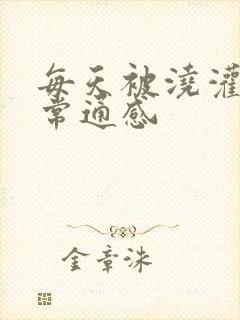 每天被浇灌
常通感
金章洙